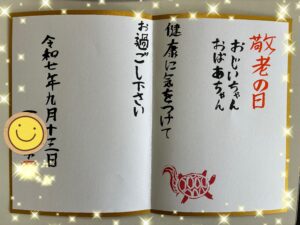 敬老の日
おじいちゃん
おばあちゃん
健康に気をつけて
お過ごし下さい
令和七年九月十三日